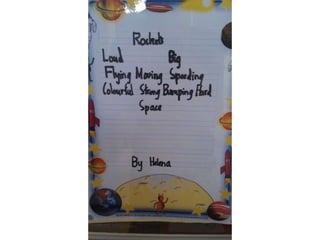 Rockets
Loud Big
Flying Moving Speeding
Colourful Strong Bumping Hard
Space
By Helena